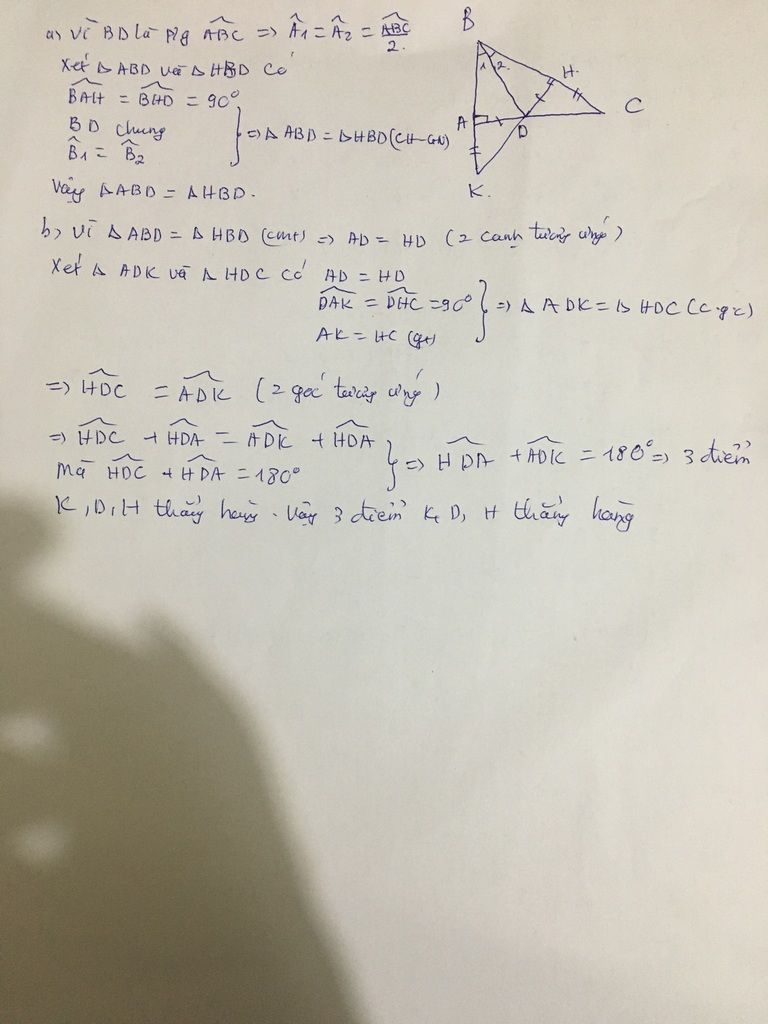 a) Vì BD là p/g \widehat{ABC} => \widehat{A}₁ = \widehat{A}₂ = \frac{\widehat{ABC}}{2}.
Xét Δ ABD và Δ HBD có
\widehat{BAH} = \widehat{BHD} = 90°
BD chung
\widehat{B}₁ = \widehat{B}₂
} => Δ ABD = Δ HBD (CH-GN)
Vậy Δ ABD = Δ HBD.
B
1 2
H
C
A
D
K.
b, Vì Δ ABD = Δ HBD (cmt) => AD = HD (2 cạnh tương ứng)
Xét Δ ADK và Δ HDC có AD = HD
\widehat{DAK} = \widehat{DHC} = 90° } => Δ ADK = Δ HDC (c.g.c)
AK = HC (gt)
=> \widehat{HDC} = \widehat{ADK} (2 góc tương ứng)
=> \widehat{HDC} + \widehat{HDA} = \widehat{ADK} + \widehat{HDA}
Mà \widehat{HDC} + \widehat{HDA} = 180° } => \widehat{HDA} + \widehat{ADK} = 180° => 3 điểm
K, D, H thẳng hàng. Vậy 3 điểm K, D, H thẳng hàng